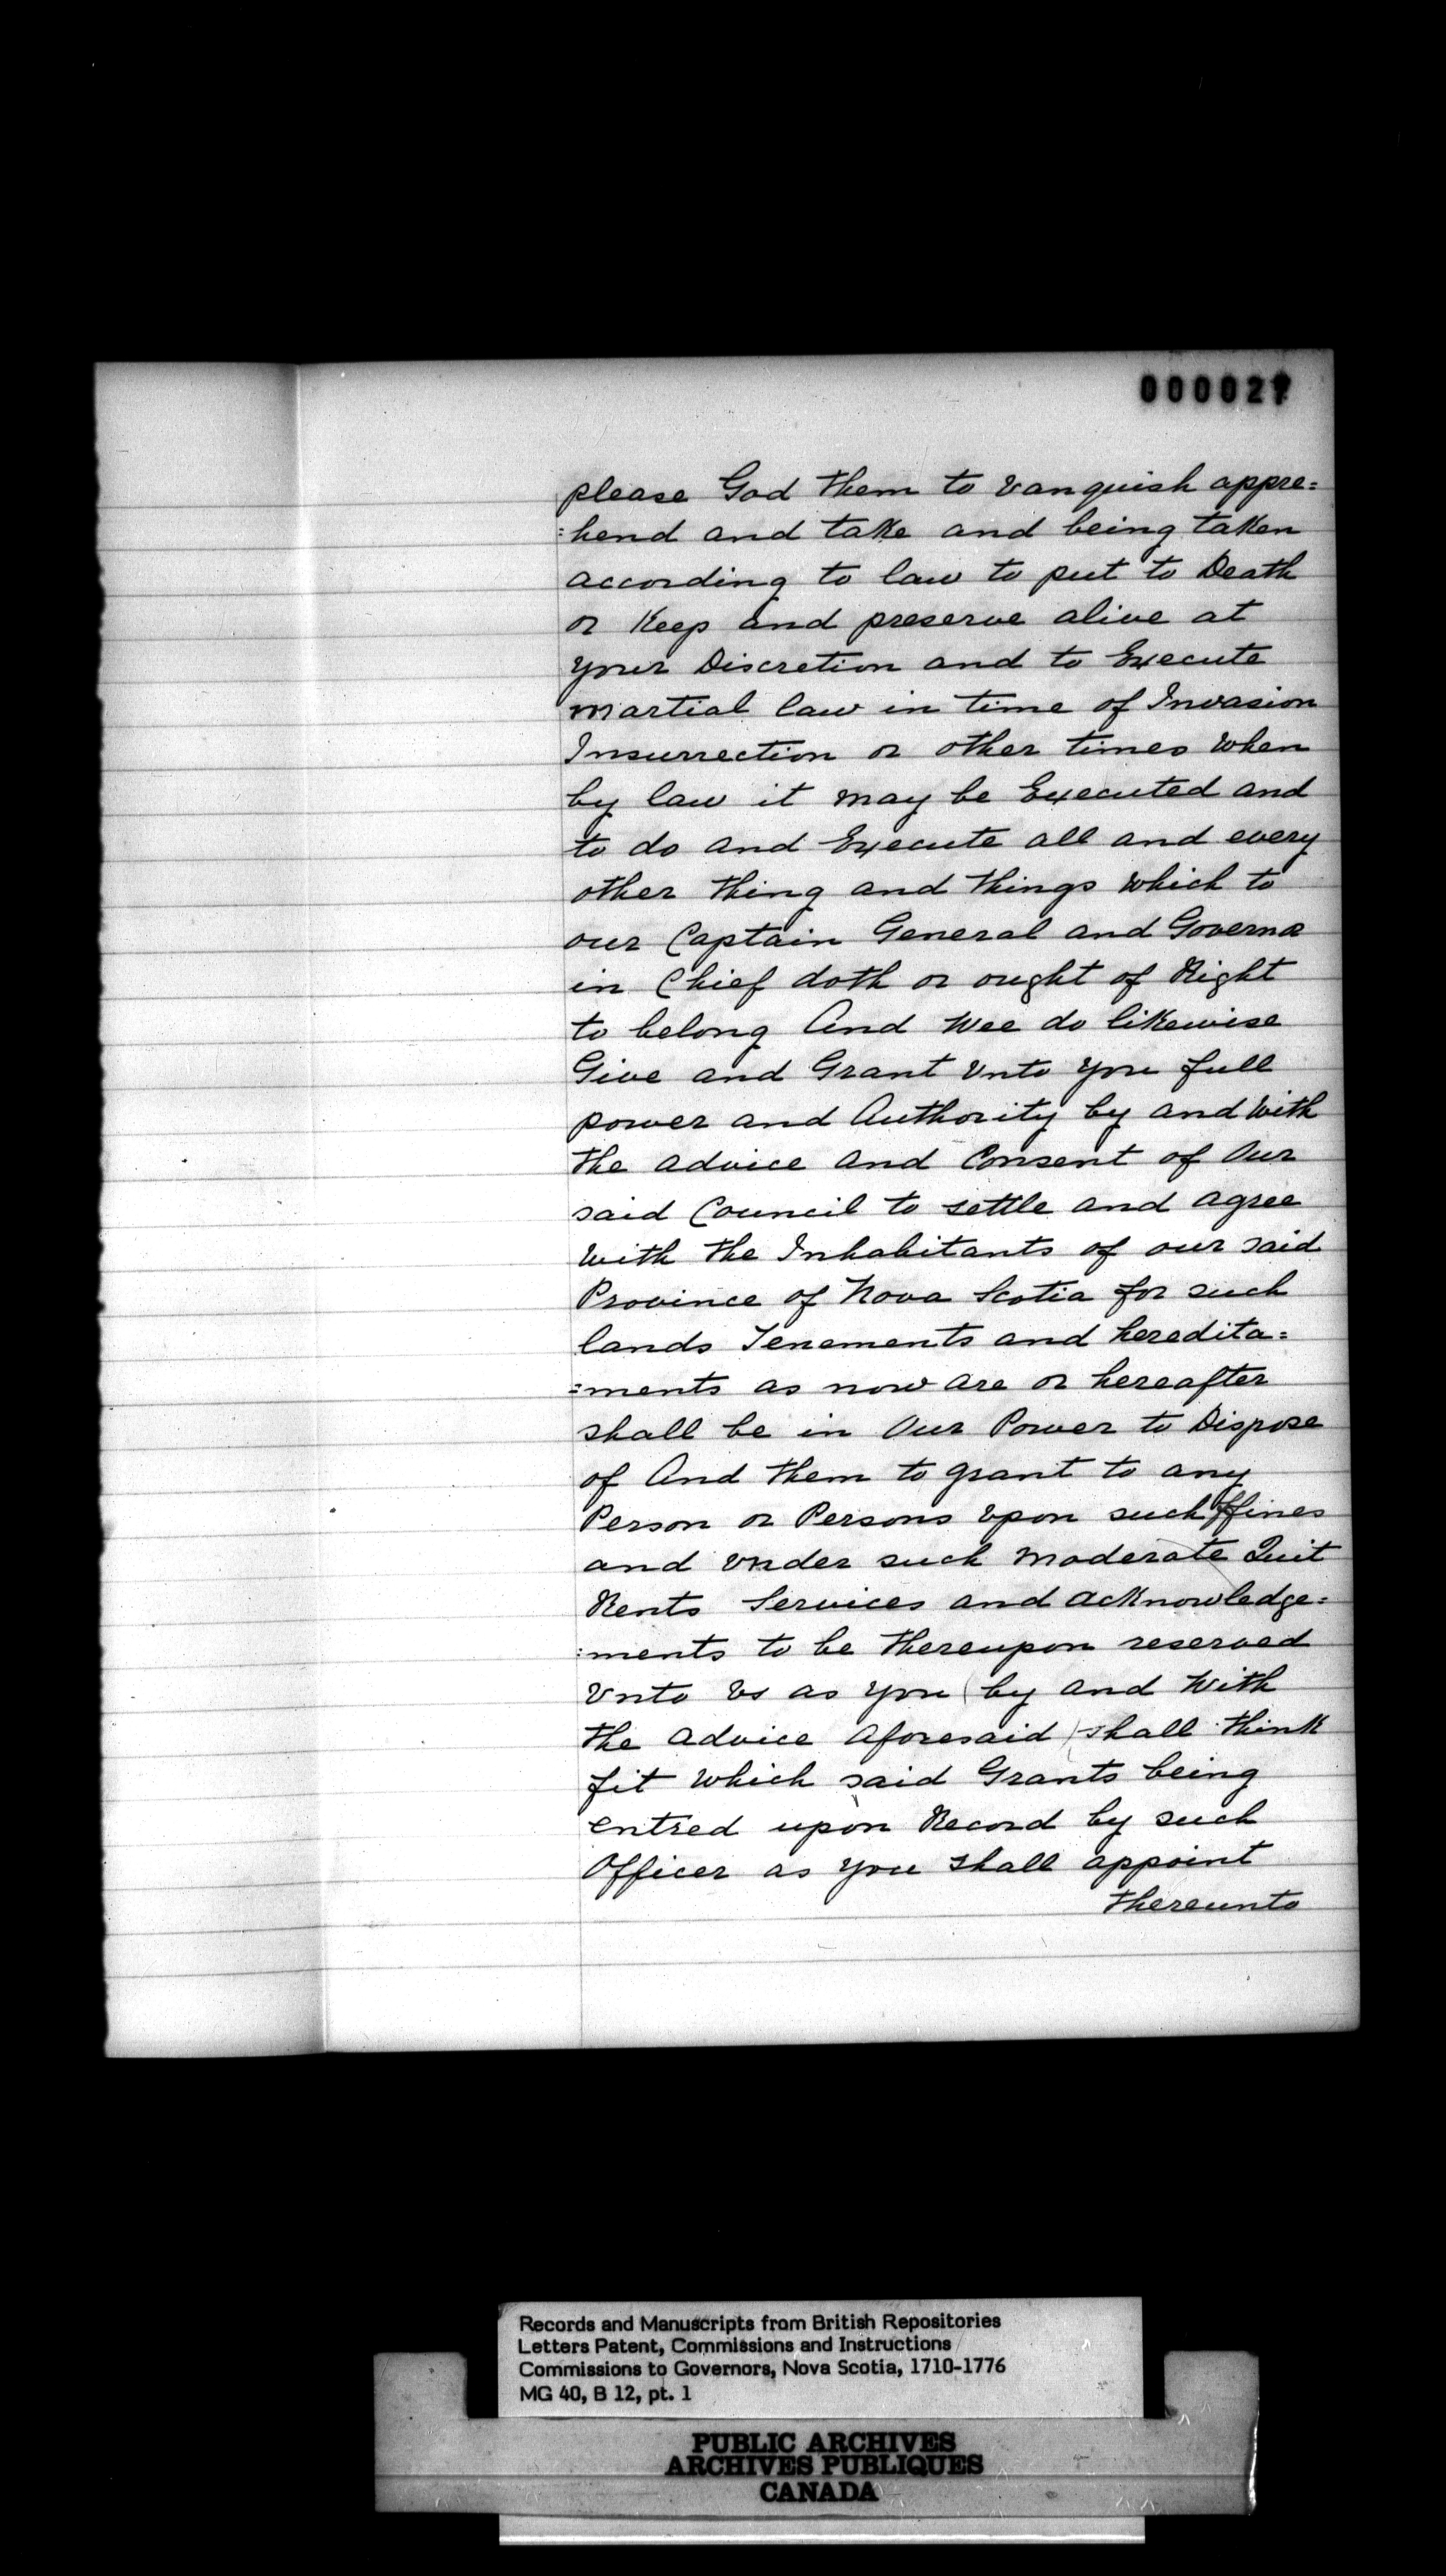 000027
please God them to Vanquish appre=
=hend and take and being taken
according to law to put to Death
or Keep and preserve alive at
your Discretion and to Execute
martial law in time of Invasion
Insurrection or other times When
by law it may be Executed and
to do and Execute all and every
other thing and things which to
our Captain General and Governor
in Chief doth or ought of Right
to belong And Wee do likewise
Give and Grant Vnto you full
power and Authority by and With
the advice and Consent of Our
said Council to settle and agree
With the Inhabitants of our said
Province of Nova Scotia for such
lands Tenements and heredita=
=ments as now are or hereafter
shall be in Our Power to Dispose
of And them to grant to any
Person or Persons Vpon such ffines
and Vnder such moderate Quit
Rents Services and acknowledge=
=ments to be thereupon reserved
Vnto Vs as you (by and With
the advice aforesaid) shall think
fit Which said Grants being
entred upon Record by such
Officer as you shall appoint
thereunto
Records and Manuscripts from British Repositories
Letters Patent, Commissions and Instructions
Commissions to Governors, Nova Scotia, 1710-1776
MG 40, B 12, pt. 1
PUBLIC ARCHIVES
ARCHIVES PUBLIQUES
CANADA